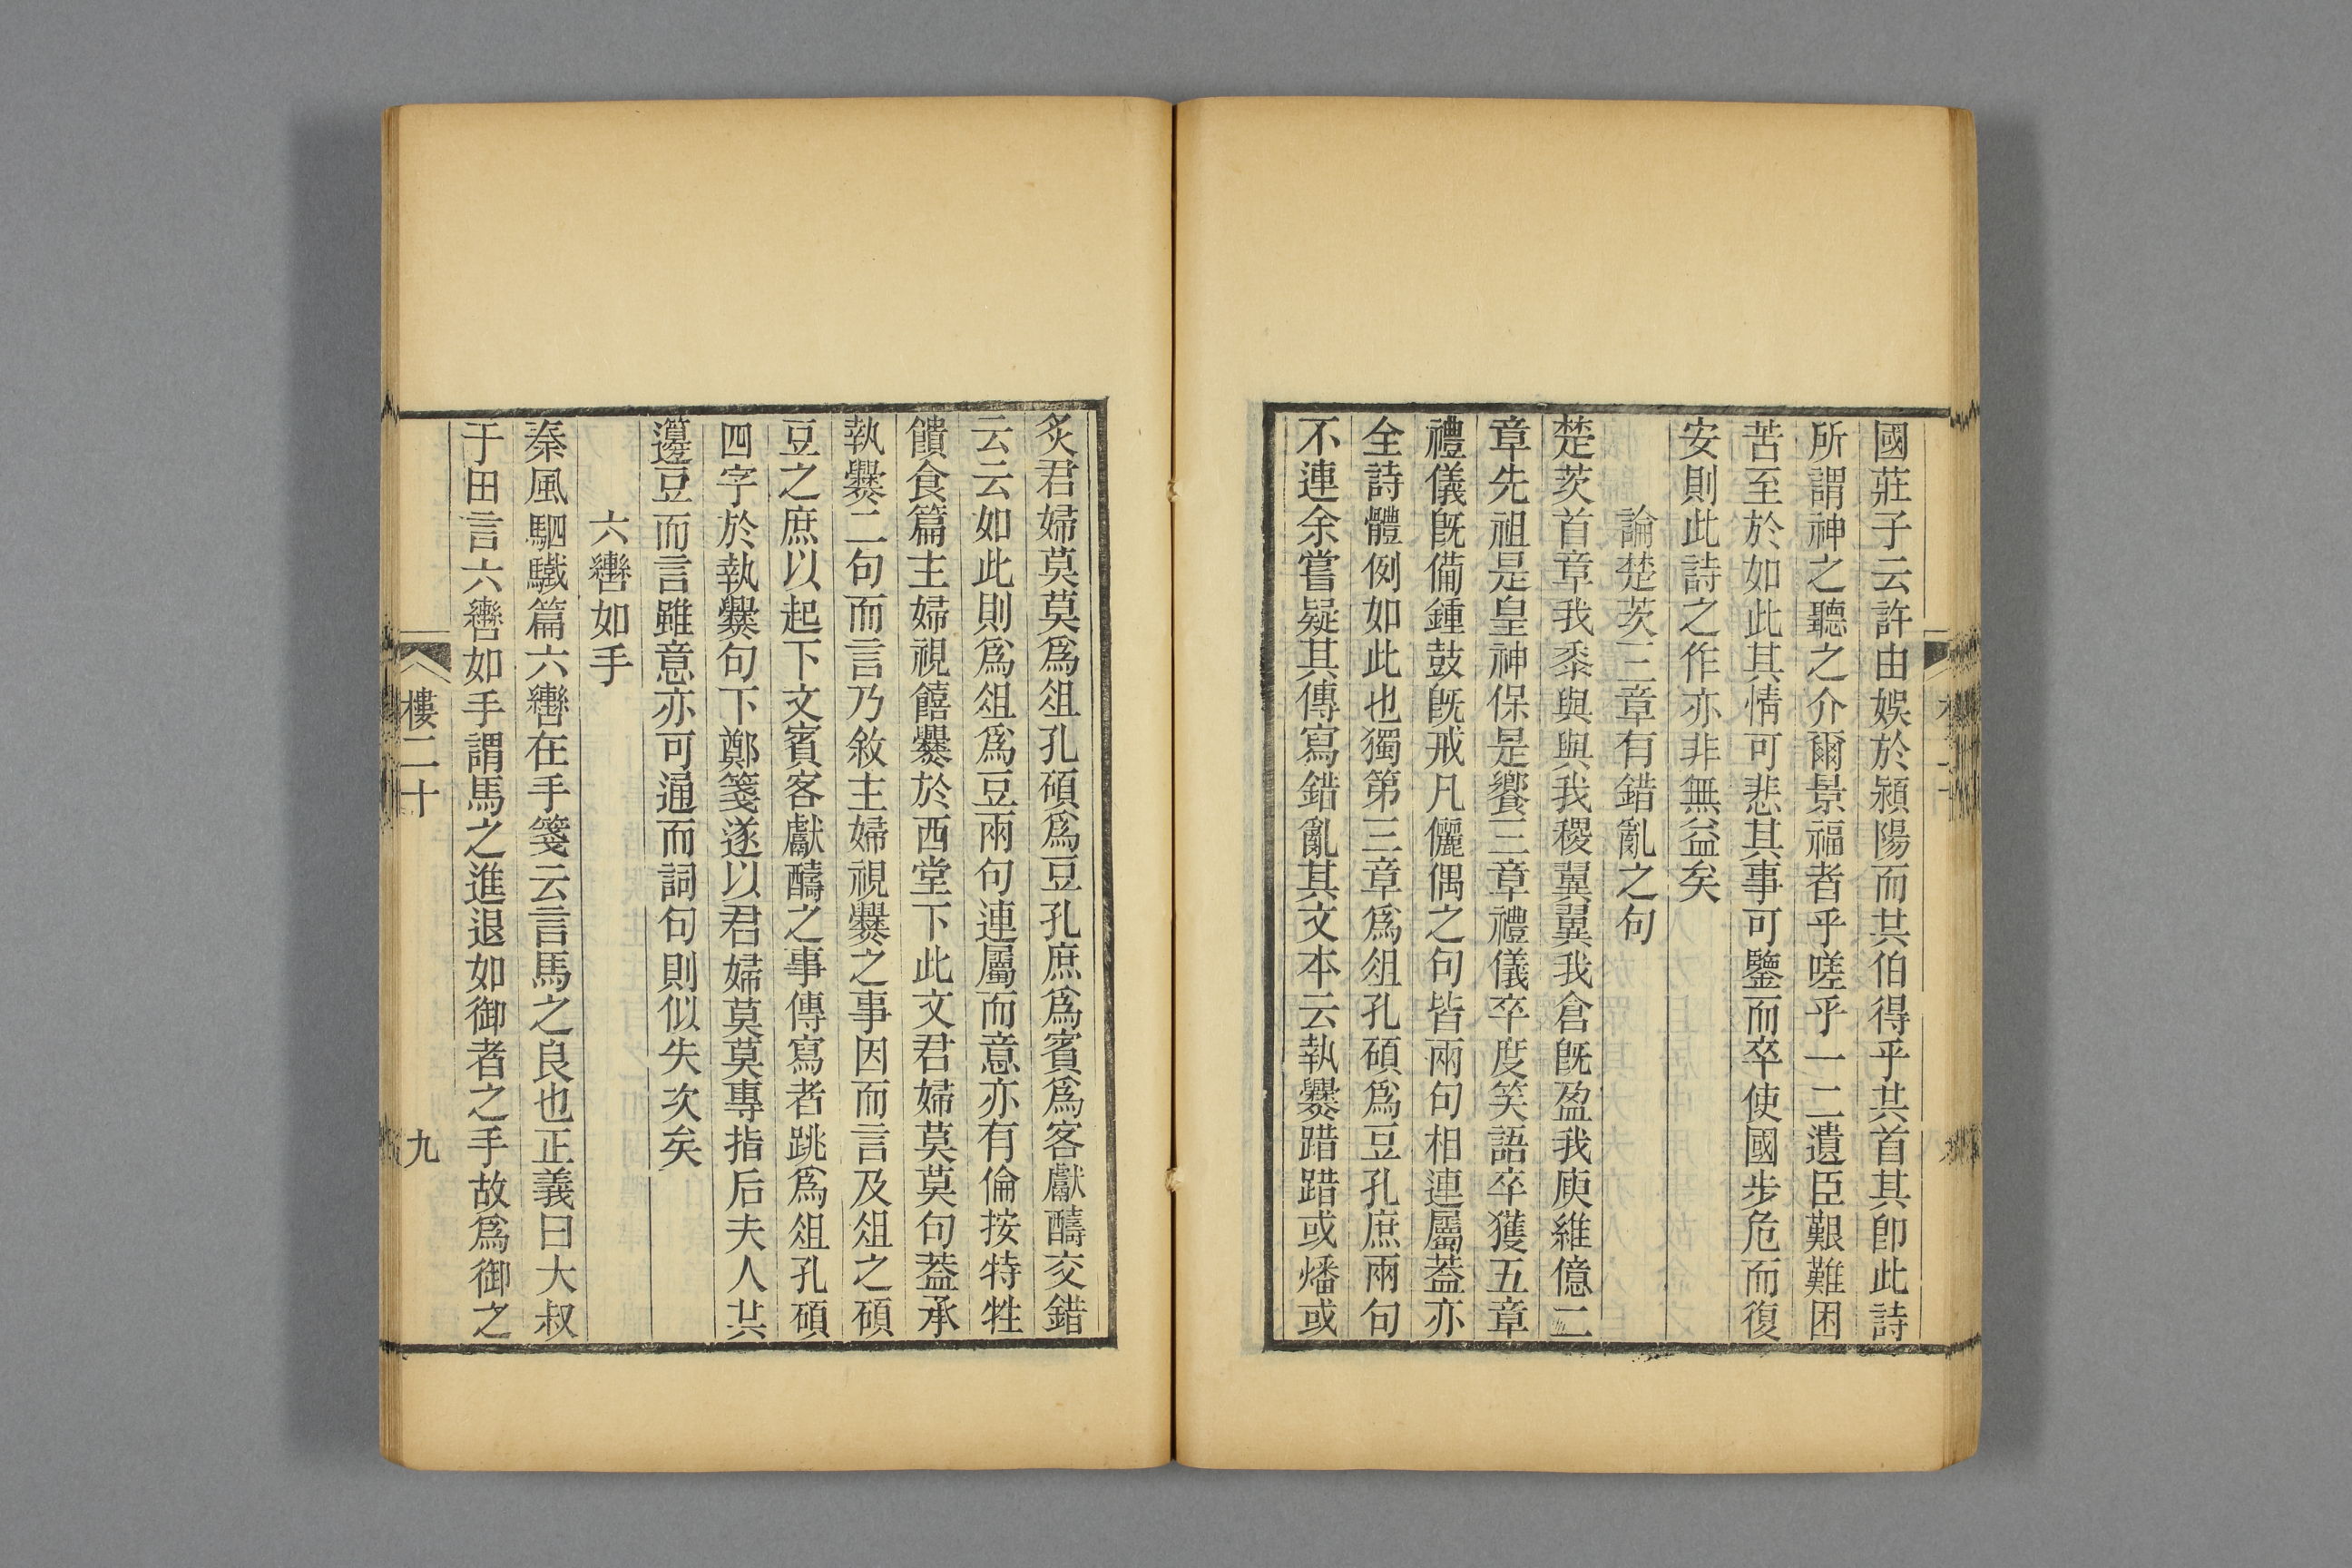 國莊子云許由娛於潁陽而共伯得乎共首其卽此詩
所謂神之聽之介爾景福者乎嗟乎一二遺臣艱難困
苦至於如此其情可悲其事可鑒而卒使國步危而復
安則此詩之作亦非無益矣
論楚茨三章有錯亂之句
楚茨首章我黍與與我稷翼翼我倉旣盈我庾維億二
章先祖是皇神保是饗三章禮儀卒度笑語卒獲五章
禮儀旣備鍾鼓旣戒凡儷偶之句皆兩句相連屬葢亦
全詩體例如此也獨第三章爲俎孔碩爲豆孔庶兩句
不連余嘗疑其傳寫錯亂其文本云執爨踖踖或燔或
炙君婦莫莫爲俎孔碩爲豆孔庶爲賓爲客獻醻交錯
云云如此則爲俎爲豆兩句連屬而意亦有倫按特牲
饋食篇主婦視饎爨於西堂下此文君婦莫莫句葢承
執爨二句而言乃敘主婦視爨之事因而言及俎之碩
豆之庶以起下文賓客獻醻之事傳寫者跳爲俎孔碩
四字於執爨句下鄭箋遂以君婦莫莫專指后夫人共
籩豆而言雖意亦可通而詞句則似失次矣
六轡如手
秦風駟驖篇六轡在手箋云言馬之良也正義曰大叔
于田言六轡如手謂馬之進退如御者之手故爲御之
樓二十
九